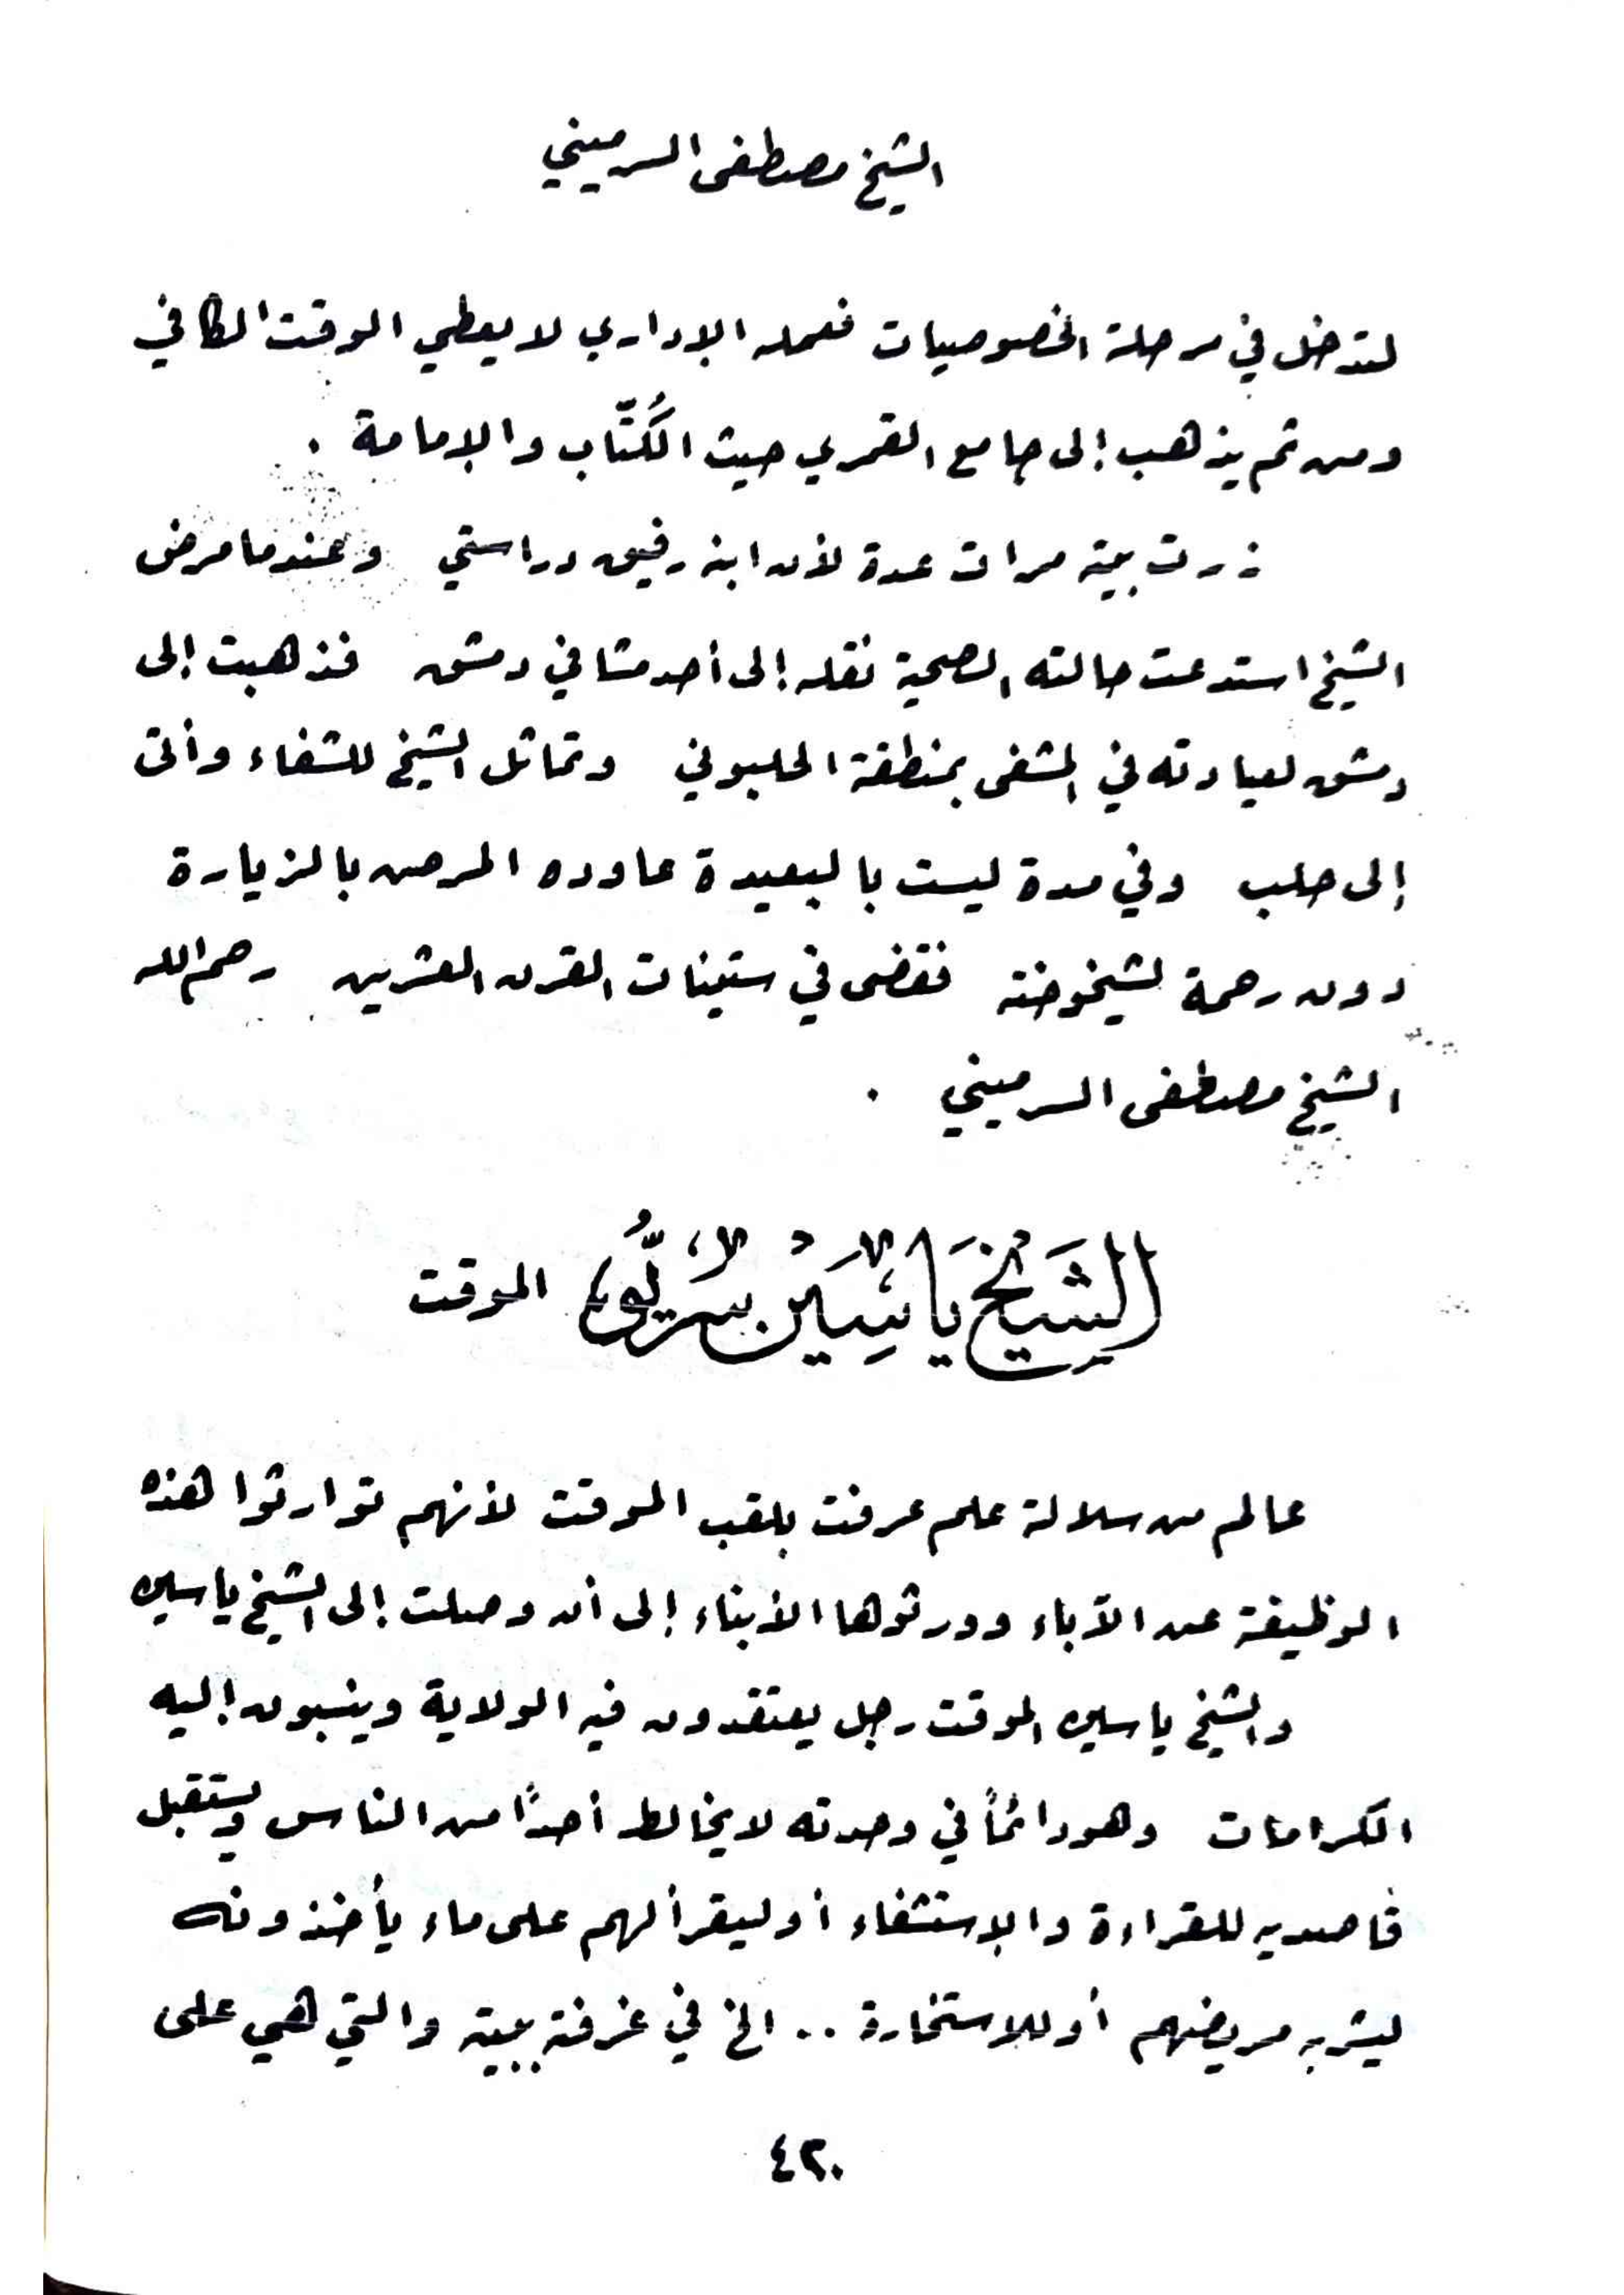 الشيخ مصطفى السرميني
لتدخل في مرحلة الخصوصيات فعمله الإداري لا يعطي الوقت الكافي
ومن ثم يذهب إلى جامع القمري حيث الكُتّاب والإمامة .
زرت بيته مرات عدة لأن ابنه رفيق دراستي وعندما مرض
الشيخ استدعت حالته الصحية نقله إلى أحد مشافي دمشق فذهبت إلى
دمشق لعيادته في المشفى بمنطقة الحلبوني وتماثل الشيخ للشفاء وأتى
إلى حلب وفي مدة ليست بالبعيدة عاوده المرض بالزيارة
دون رحمة لشيخوخته فقضى في ستينات القرن العشرين رحم الله
الشيخ مصطفى السرميني .
الشَيْخ يَاسِين سَريّو الموقت
عالم من سلالة علم عرفت بلقب الموقت لأنهم توارثوا هذه
الوظيفة عن الآباء وورثوها الأبناء إلى أن وصلت إلى الشيخ ياسين
والشيخ ياسين الموقت رجل يعتقدون فيه الولاية وينسبون إليه
الكرامات وهو دائماً في وحدته لا يخالط أحداً من الناس ويستقبل
قاصديه للقراءة والإستشفاء أو ليقرأ لهم على ماء يأخذونه
ليشربه مريضهم أو للاستخارة .. الخ في غرفة ببيته والتي هي على
٤٢٠